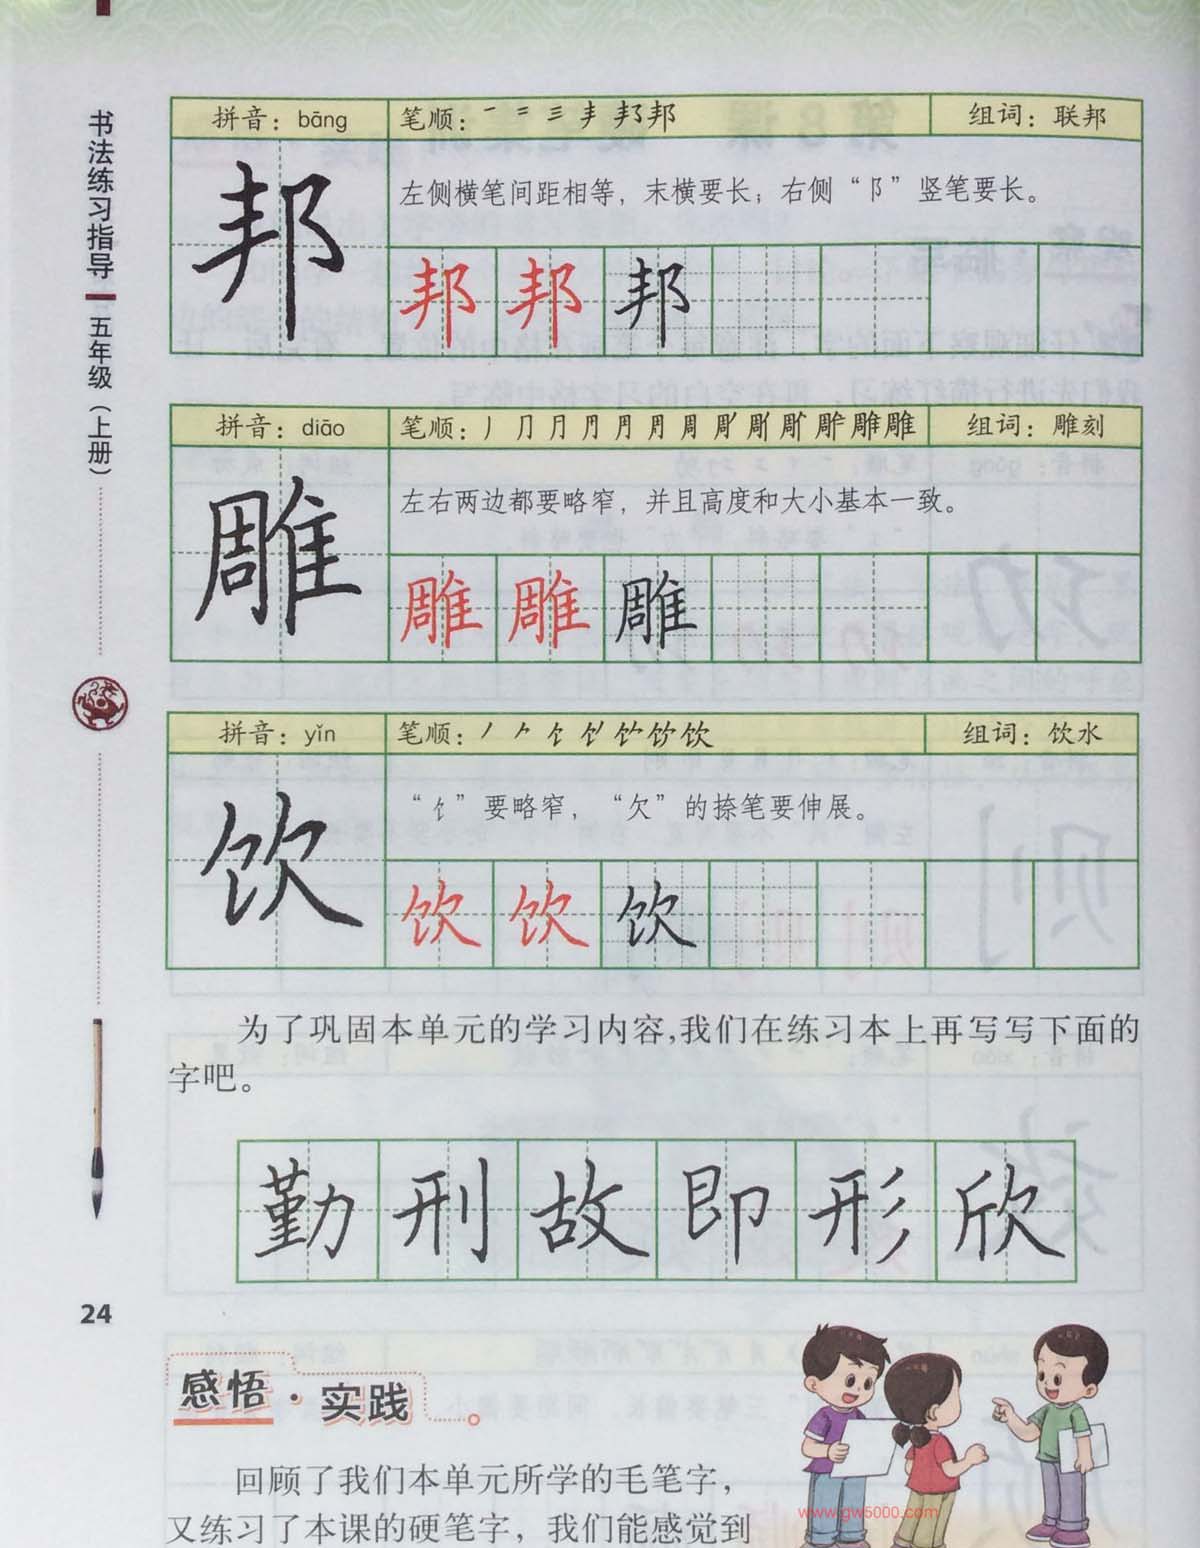 书法练习指导 五年级（上册）
拼音：bāng 笔顺：一 二 三 丰 邦 邦 组词：联邦
邦
左侧横笔间距相等，末横要长；右侧“阝”竖笔要长。
邦 邦 邦
拼音：diāo 笔顺：丿 冂 月 冃 周 周 周 雕 雕 雕 组词：雕刻
雕
左右两边都要略窄，并且高度和大小基本一致。
雕 雕 雕
拼音：yǐn 笔顺：丿 𠂉 饣 饮 饮 组词：饮水
饮
“饣”要略窄，“欠”的捺笔要伸展。
饮 饮 饮
为了巩固本单元的学习内容,我们在练习本上再写写下面的
字吧。
勤 刑 故 即 形 欣
24
感悟·实践
回顾了我们本单元所学的毛笔字，
又练习了本课的硬笔字，我们能感觉到
www.gw5000.com